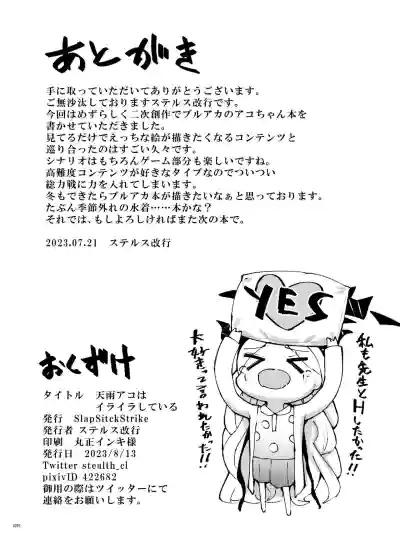 あとがき
手に取っていただいてありがとうございます。
ご無沙汰しておりますステルス改行です。
今回はめずらしく二次創作でブルアカのアコちゃん本を
書かせていただきました。
見てるだけでえっちな絵が描きたくなるコンテンツと
巡り合ったのはすごい久々です。
シナリオはもちろんゲーム部分も楽しいですね。
高難度コンテンツが好きなタイプなのでついつい
総力戦に力を入れてしまいます。
冬もできたらブルアカ本が描きたいなぁと思っております。
たぶん季節外れの水着……本かな？
それでは、もしよろしければまた次の本で。
2023.07.21 ステルス改行
YES
私も先生とHしたかった!!
大好きって言われたかった!!
おくずけ
タイトル 天雨アコは
イライラしている
発行 SlapSitckStrike
発行者 ステルス改行
印刷 丸正インキ様
発行日 2023/8/13
Twitter stealth_cl
pixivID 422682
御用の際はツイッターにて
連絡をお願いします。